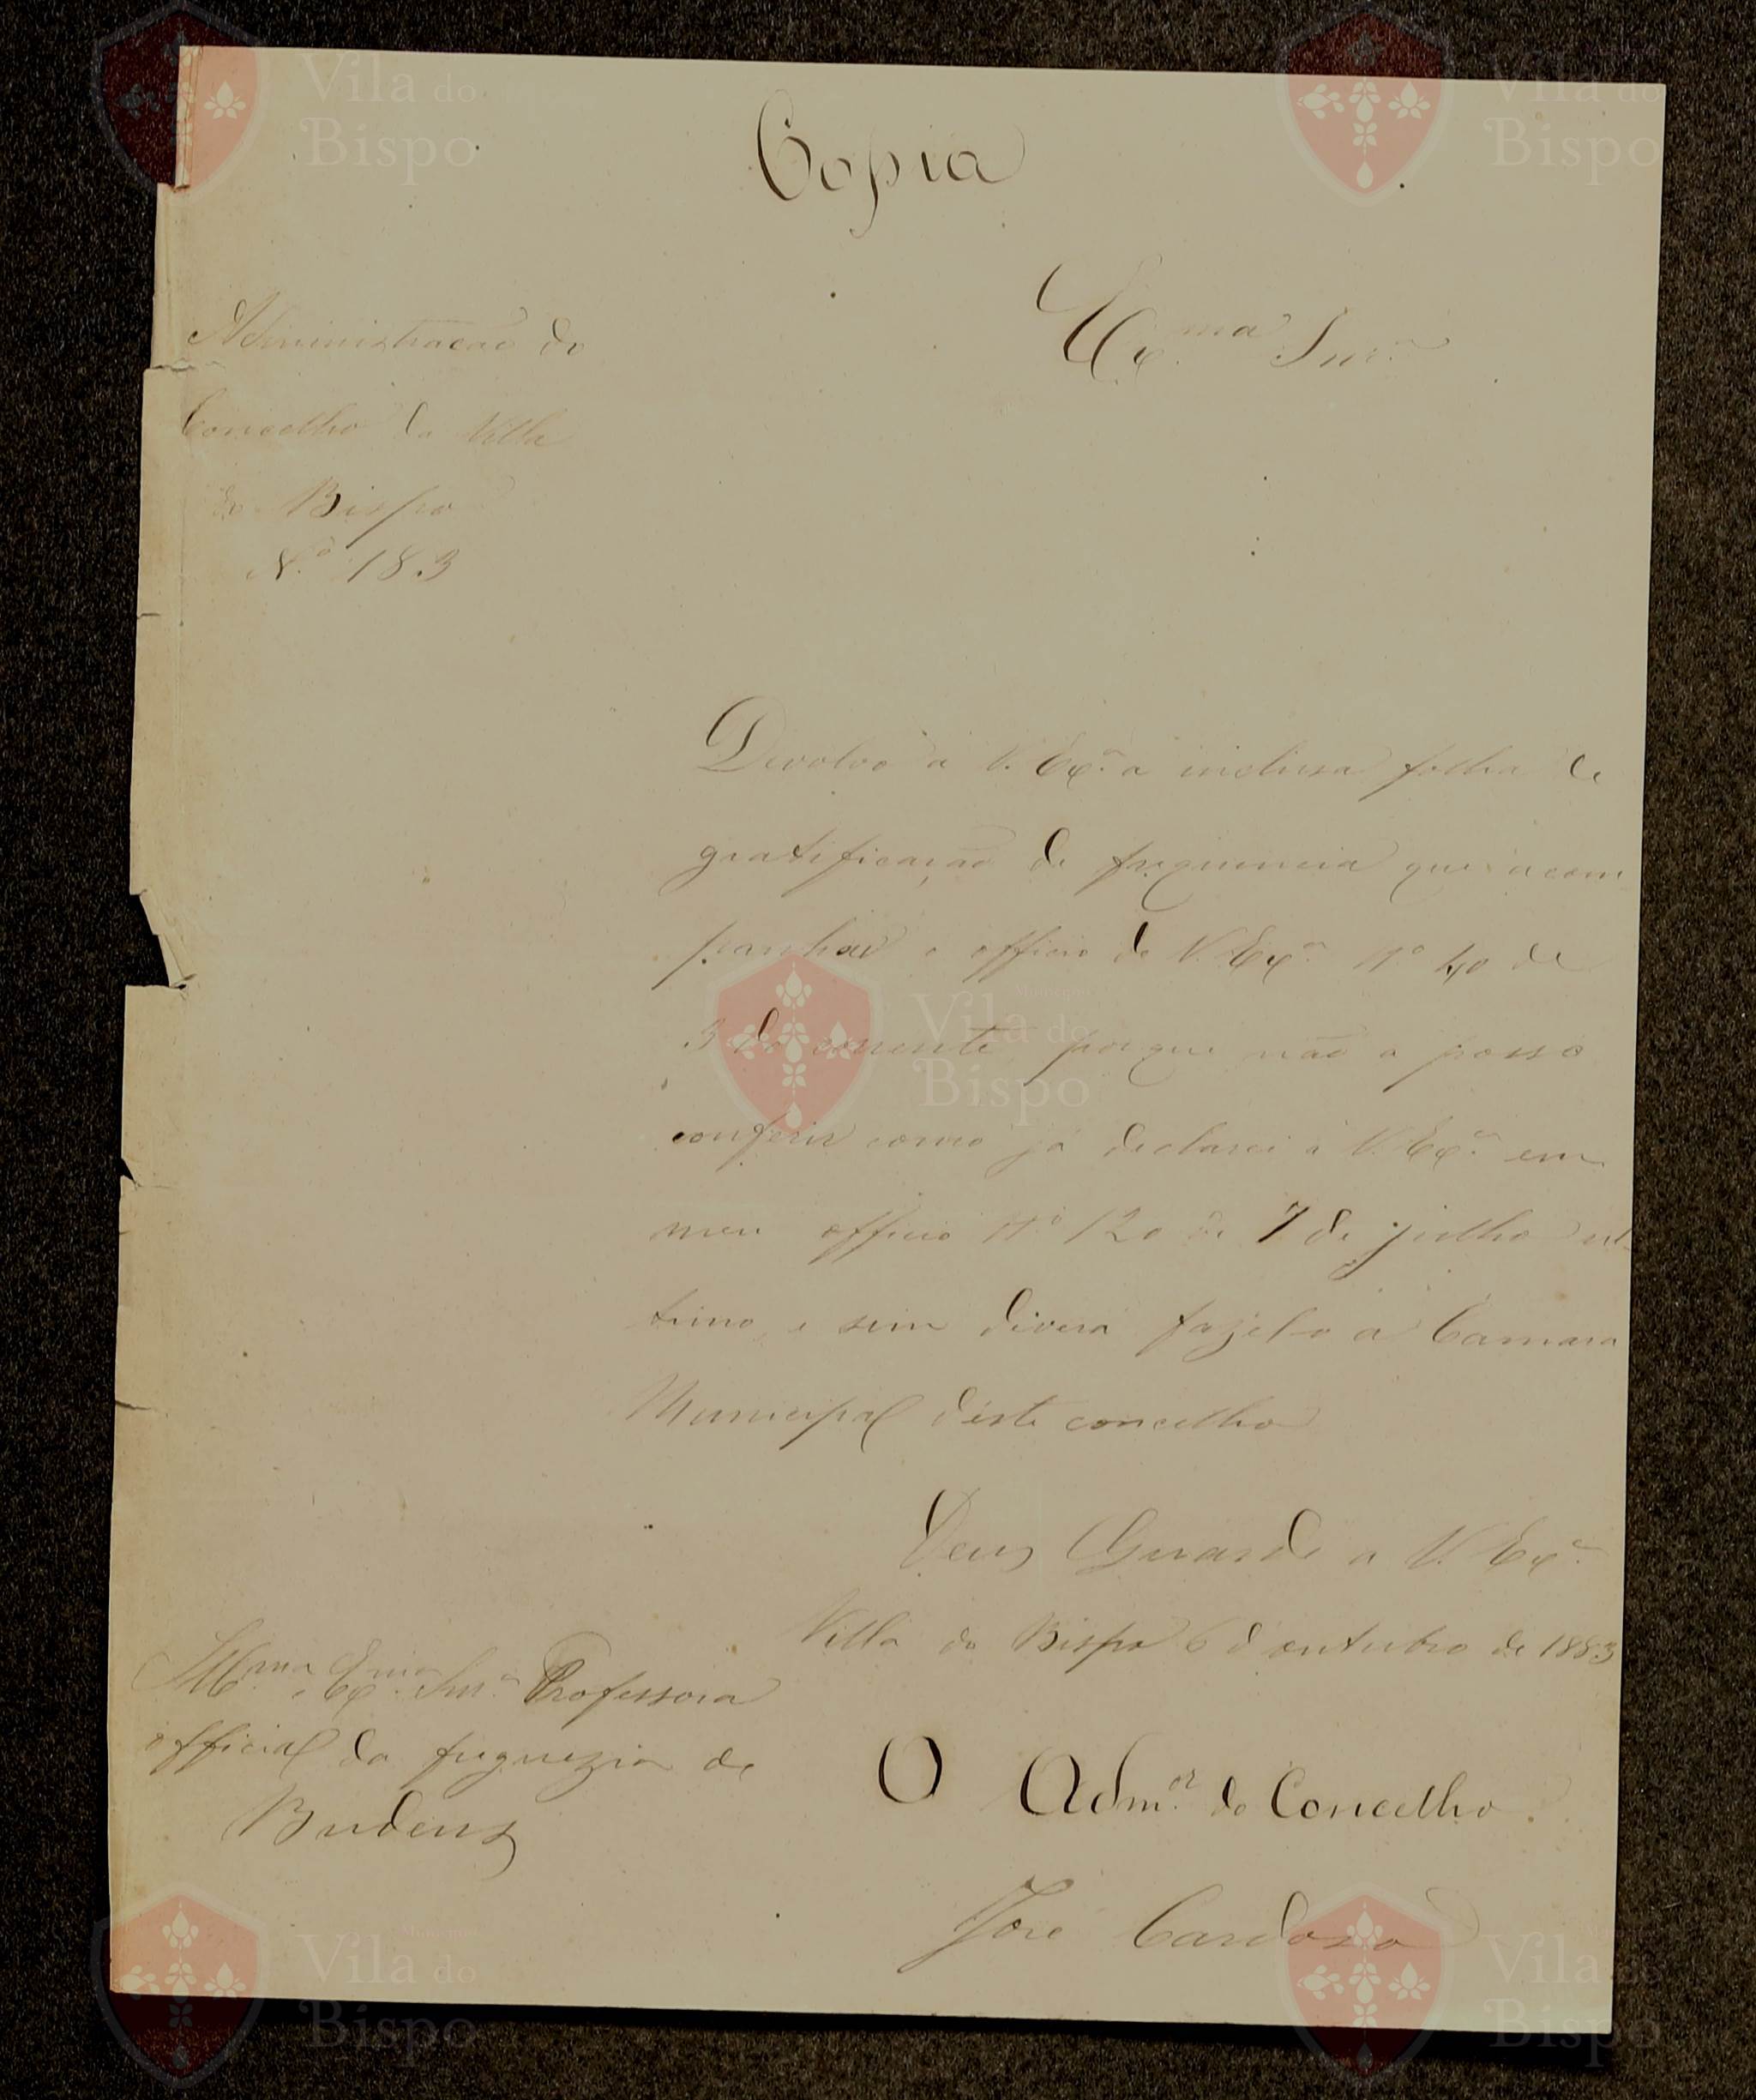 Copia
Administração do
Concelho da Villa
do Bispo
N.º 183
Ex.ma Snr.ª
Devolvo a V. Ex.ª a inclusa folha de
gratificação de frequencia que acom
panhou o officio de V. Ex.ª Nº 40 de
3 do corrente, porque não a posso
conferir como já declarei a V. Ex.ª em
meu officio Nº 120 de 7 de julho ul
timo, e sim devera fazel-o a Camara
Municipal d'este concelho
Deus Guarde a V. Ex.ª
Villa do Bispo 6 d'outubro de 1883
Ill.ma e Ex.ma Snr.ª Professora
official da freguezia de
Budens
O Adm.or do Concelho
José Cardoso
Vila do
Bispo
Vila do
Bispo
Município
Vila do
Bispo
Município
Vila do
Bispo
Vila do
Bispo